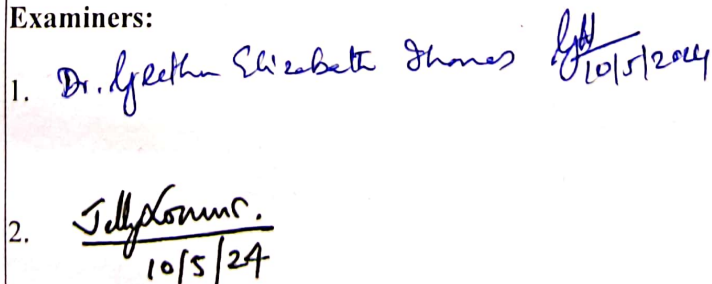 Examiners:
1. Dr. Geethu Elizabeth Thomas 10/5/2024
2.
10/5/24